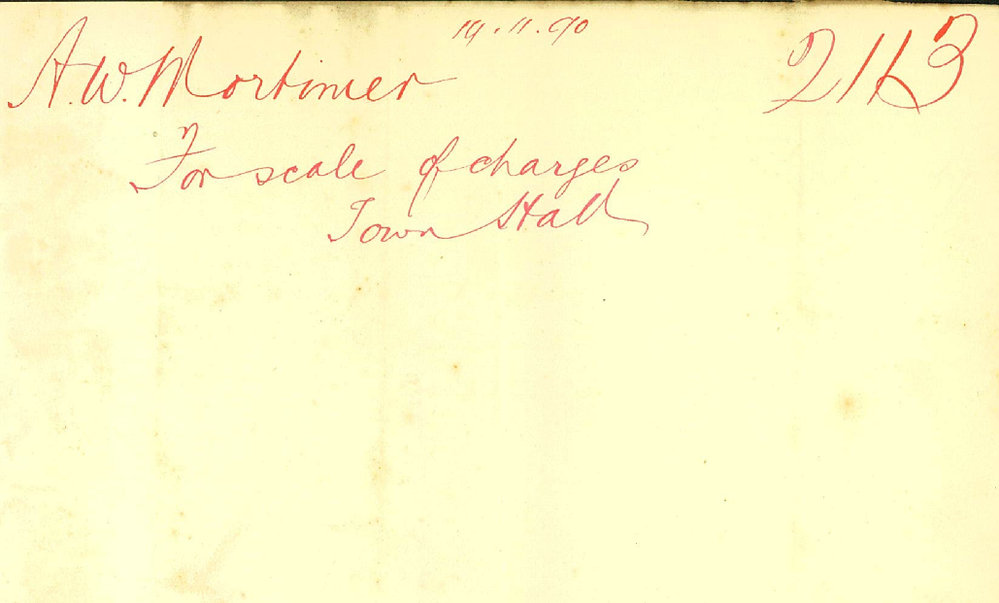 14.11.90
A.W. Mortimer
2113
For scale of charges
Town Hall